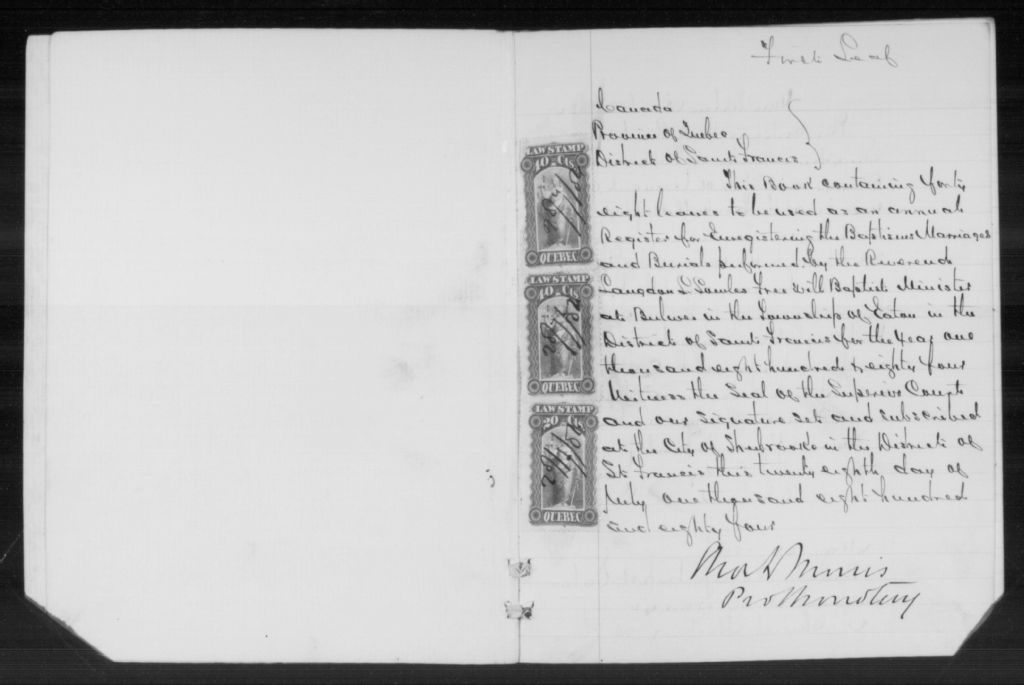 First Leaf
Canada
Province of Quebec
District of Saint Francis
This Book containing forty
eight leaves to be used as an annual
Register for Enregistering the Baptisms Marriages
and Burials performed by the Reverend
Langdon L Free Will Baptist Minister
at Bulwer in the Township of Eaton in the
District of Saint Francis for the Year one
thousand eight hundred & eighty four
Witness the Seal of the Superior Court
and our signature set and subscribed
at the City of Sherbrooke in the District of
St Francis this twenty eighth day of
July one thousand eight hundred
and eighty four
Morris
Prothonotary
LAW STAMP
40 Cts
QUEBEC
LAW STAMP
40 Cts
QUEBEC
LAW STAMP
20 Cts
QUEBEC